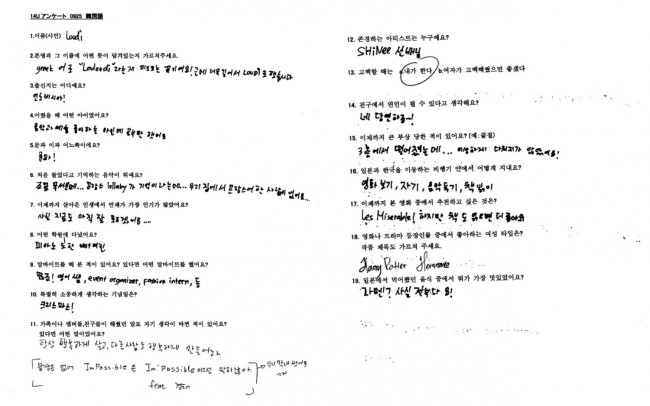 14U アンケート 0925 韓国語
1.이름(사인) Loudi
2.본명과 그 이름에 어떤 뜻이 담겨있는지 가르쳐주세요.
greek 어로
3.출신지는 어디예요?
4.어렸을 때 어떤 아이였어요?
음악과 예술
5.문과 이과 어느쪽이에요?
6. 처음 들었다고 기억하는 음악이 뭐예요?
lullaby 가
7. 이제까지 살아온 인생에서 언제가 가장 인기가 많았어요?
사실 지금도 아직 잘 모르겠어요....
8. 어떤 학원에 다녔어요?
피아노
9. 알바이트를 해 본 적이 있어요? 있다면 어떤 알바이트를 했어요?
많음! 영어 쌤, event organiser, fashion intern, 등
10. 특별히 소중하게 생각하는 기념일은?
크리스마스!
11. 가족이나 멤버들,친구들이 해줬던 말로 자기 생각이 바뀐 적이 있어요?
있다면 어떤 말이었어요?
항상 행복하게 살고, 다른사람도 행복하게 만들어라
불가능은 없어 Impossible은 Im'Possible이라고 말하잖아
feat.
12. 존경하는 아티스트는 누구에요?
SHINee 선배님
13. 고백할 때는 a.내가 한다 b.여자가 고백해줬으면 좋겠다
14. 친구에서 연인이 될 수 있다고 생각해요?
네 당연하죠~!
15. 이제까지 큰 부상 당한 적이 있어요? (예:골절)
3층에서 떨어졌는데... 이상하게 다치지가 않았어요!
16. 일본과 한국을 이동하는 비행기 안에서 어떻게 지내요?
영화 보기, 자기, 음악듣기, 책 읽기
17. 이제까지 본 영화 중에서 추천하고 싶은 것은?
Les Miserables! 하지만 책도 읽으면 더 좋아요
18. 영화나 드라마 등장인물 중에서 좋아하는 여성 타입은?
작품 제목도 가르쳐 주세요.
Harry Potter Hermione
19. 일본에서 먹어봤던 음식 중에서 뭐가 가장 맛있었어요?
라멘!? 사실 전부다요!